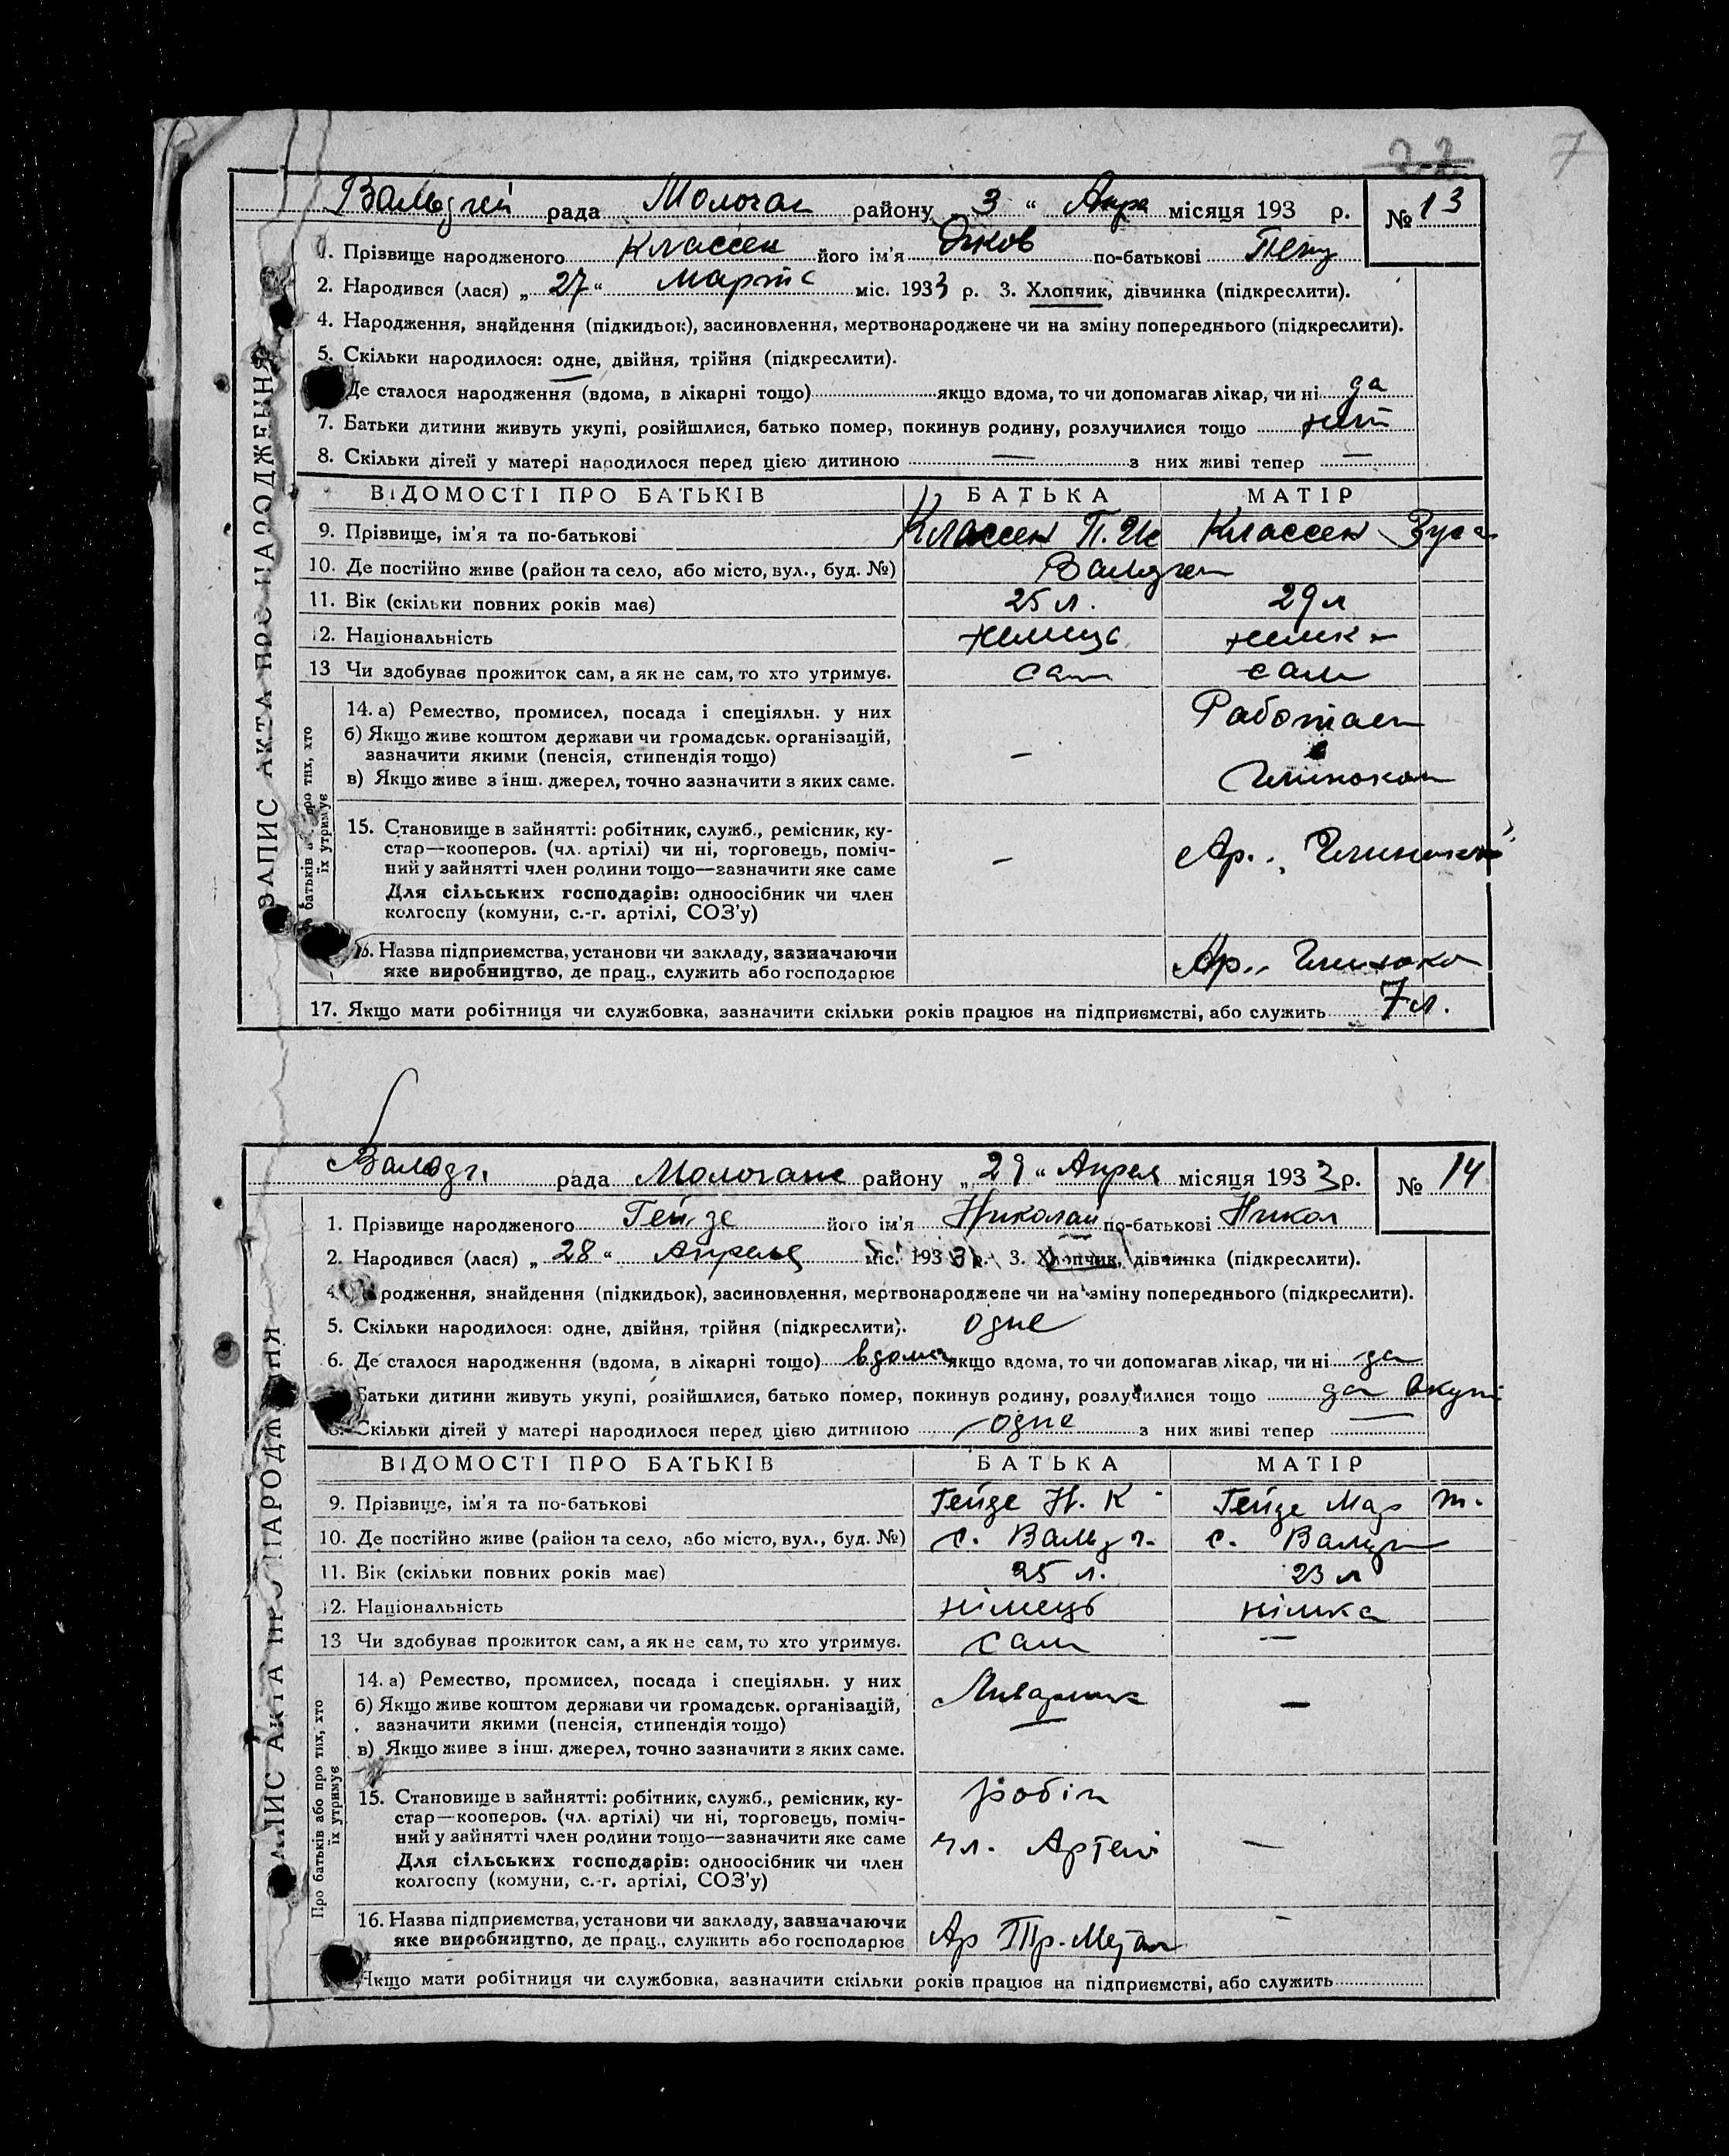 22 7
Вальдгей рада Молочан району 3 " Апре місяця 193 р. № 13
1. Прізвище народженого Классен його ім'я Яков по-батькові Петр
2. Народився (лася) „ 27 " Марта міс. 1933 р. 3. Хлопчик, дівчинка (підкреслити).
4. Народження, знайдення (підкидьок), засиновлення, мертвонароджене чи на зміну попереднього (підкреслити).
5. Скільки народилося: одне, двійня, трійня (підкреслити).
Де сталося народження (вдома, в лікарні тощо) якщо вдома, то чи допомагав лікар, чи ні да
7. Батьки дитини живуть укупі, розійшлися, батько помер, покинув родину, розлучилися тощо нет
8. Скільки дітей у матері народилося перед цією дитиною — з них живі тепер —
ВІДОМОСТІ ПРО БАТЬКІВ БАТЬКА МАТІР
9. Прізвище, ім'я та по-батькові Классен П. Классен Зуса
10. Де постійно живе (район та село, або місто, вул., буд. №) Вальдгей
11. Вік (скільки повних років має) 25 л. 29 л
12. Національність немець немка
13 Чи здобуває прожиток сам, а як не сам, то хто утримує. сам сам
14. а) Ремество, промисел, посада і спеціяльн. у них Работает
б) Якщо живе коштом держави чи громадськ. організацій,
зазначити якими (пенсія, стипендія тощо) —
в) Якщо живе з інш. джерел, точно зазначити з яких саме.
15. Становище в зайнятті: робітник, служб., ремісник, ку-
стар—кооперов. (чл. артілі) чи ні, торговець, поміч- Ар.
ний у зайнятті член родини тощо—зазначити яке саме —
Для сільських господарів: одноосібник чи член
колгоспу (комуни, с.-г. артілі, СОЗ'у)
16. Назва підприємства, установи чи закладу, зазначаючи
яке виробництво, де прац., служить або господарює Ар.
17. Якщо мати робітниця чи службовка, зазначити скільки років працює на підприємстві, або служить 7 л.
ЗАПИС АКТА ПРО НАРОДЖЕННЯ
батьків про тих, хто
їх утримує
Вальдг. рада Молочанс району „ 29 " Апреля місяця 1933 р. № 14
1. Прізвище народженого Гейзе його ім'я Николай по-батькові Никол
2. Народився (лася) „ 28 " Апреля міс. 1933 р. 3. Хлопчик, дівчинка (підкреслити).
родження, знайдення (підкидьок), засиновлення, мертвонароджене чи на зміну попереднього (підкреслити).
5. Скільки народилося: одне, двійня, трійня (підкреслити). одне
6. Де сталося народження (вдома, в лікарні тощо) вдома якщо вдома, то чи допомагав лікар, чи ні да
Батьки дитини живуть укупі, розійшлися, батько помер, покинув родину, розлучилися тощо да вкупі
8. Скільки дітей у матері народилося перед цією дитиною одне з них живі тепер —
ВІДОМОСТІ ПРО БАТЬКІВ БАТЬКА МАТІР
9. Прізвище, ім'я та по-батькові Гейзе Н. К Гейзе Мар
10. Де постійно живе (район та село, або місто, вул., буд. №) с. Вальдг. с. Вальдг
11. Вік (скільки повних років має) 25 л. 23 л
12. Національність німець німка
13 Чи здобуває прожиток сам, а як не сам, то хто утримує. сам —
14. а) Ремество, промисел, посада і спеціяльн. у них Ливарник —
б) Якщо живе коштом держави чи громадськ. організацій,
зазначити якими (пенсія, стипендія тощо)
в) Якщо живе з інш. джерел, точно зазначити з яких саме.
15. Становище в зайнятті: робітник, служб., ремісник, ку- робіт
стар—кооперов. (чл. артілі) чи ні, торговець, поміч-
ний у зайнятті член родини тощо—зазначити яке саме чл. Артелі —
Для сільських господарів: одноосібник чи член
колгоспу (комуни, с.-г. артілі, СОЗ'у)
16. Назва підприємства, установи чи закладу, зазначаючи —
яке виробництво, де прац., служить або господарює Ар Тр. Метал
Якщо мати робітниця чи службовка, зазначити скільки років працює на підприємстві, або служить
АПИС АКТА ПРО НАРОДЖЕННЯ
Про батьків або про тих, хто
їх утримує